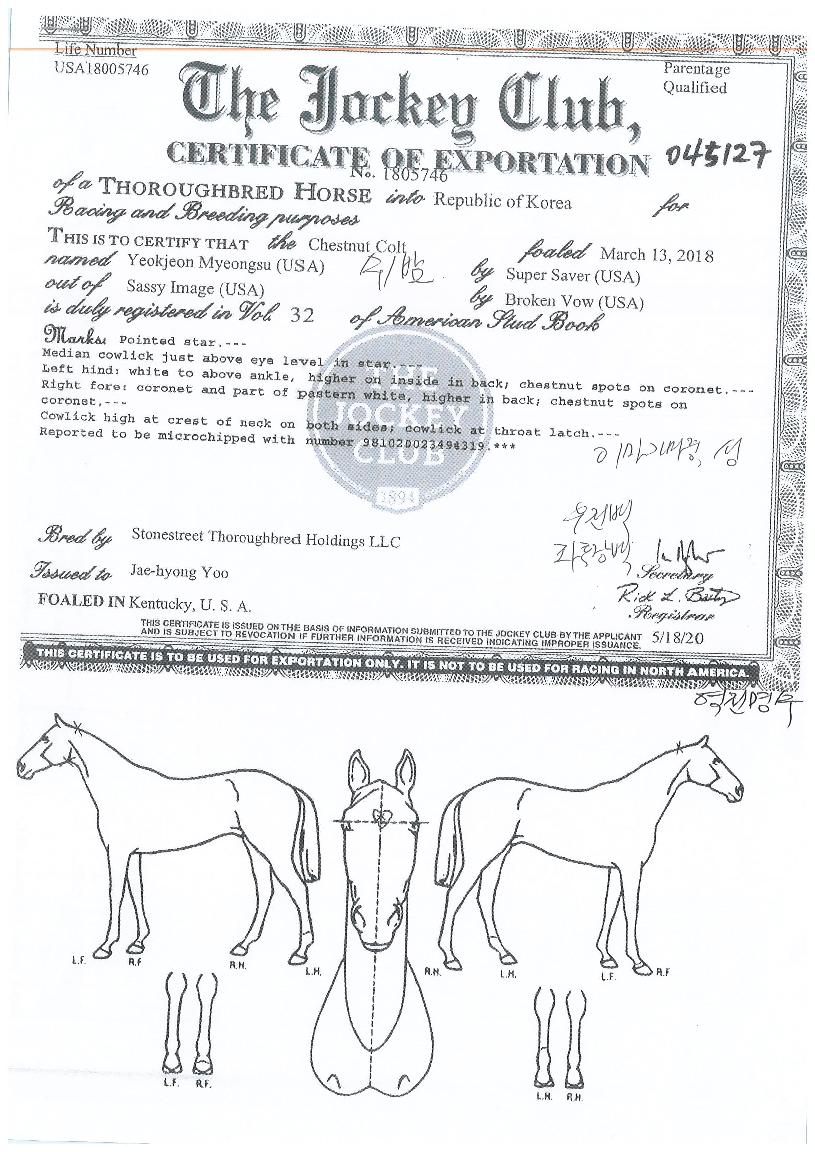 Life Number
USA18005746
Parentage
Qualified
The Jockey Club,
CERTIFICATE OF EXPORTATION 045127
No. 1805746
of a THOROUGHBRED HORSE into Republic of Korea for
Racing and Breeding purposes
THIS IS TO CERTIFY THAT the Chestnut Colt foaled March 13, 2018
named Yeokjeon Myeongsu (USA) by Super Saver (USA)
out of Sassy Image (USA) by Broken Vow (USA)
is duly registered in Vol. 32 of American Stud Book
Marks: Pointed star.---
Median cowlick just above eye level in star.---
Left hind: white to above ankle, higher on inside in back; chestnut spots on coronet.---
Right fore: coronet and part of pastern white, higher in back; chestnut spots on
coronet.---
Cowlick high at crest of neck on both sides; cowlick at throat latch.---
Reported to be microchipped with number 981020023494319.***
THE
JOCKEY
CLUB
1894
Bred by Stonestreet Thoroughbred Holdings LLC
Issued to Jae-hyong Yoo
Secretary
FOALED IN Kentucky, U. S. A.
Registrar
THIS CERTIFICATE IS ISSUED ON THE BASIS OF INFORMATION SUBMITTED TO THE JOCKEY CLUB BY THE APPLICANT
AND IS SUBJECT TO REVOCATION IF FURTHER INFORMATION IS RECEIVED INDICATING IMPROPER ISSUANCE. 5/18/20
THIS CERTIFICATE IS TO BE USED FOR EXPORTATION ONLY. IT IS NOT TO BE USED FOR RACING IN NORTH AMERICA.
역전명수
L.F. R.F R.H. L.H. R.H. L.H. L.F. R.F
L.F. R.F. L.H. R.H.